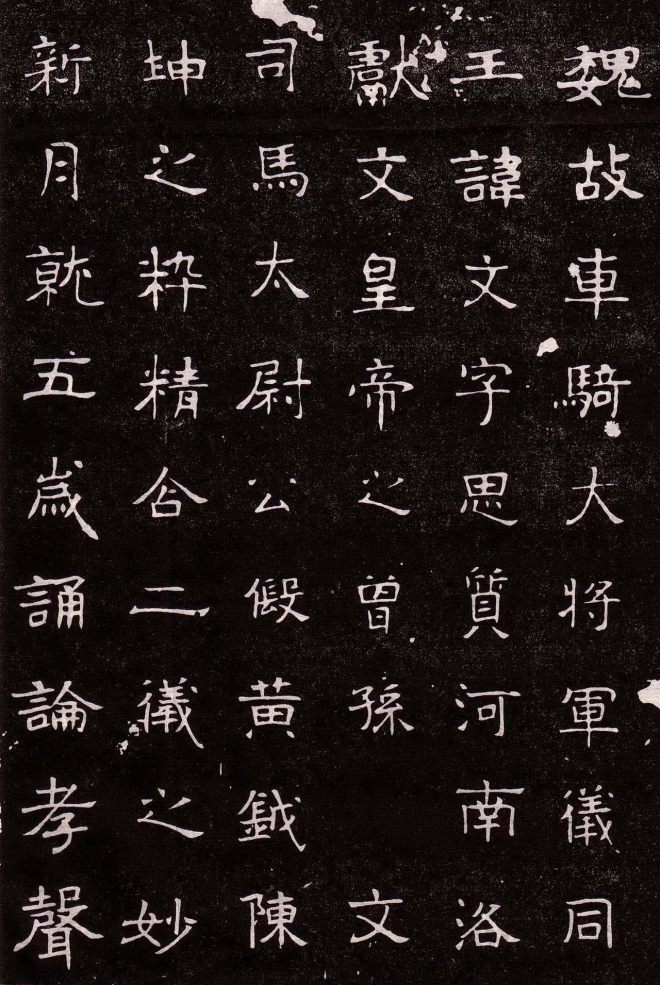 魏故車騎大將軍儀同
王諱文字思質河南洛
獻文皇帝之曾孫 文
司馬太尉公假黃鉞陳
坤之粹精合二儀之妙
新月就五歲誦論孝聲